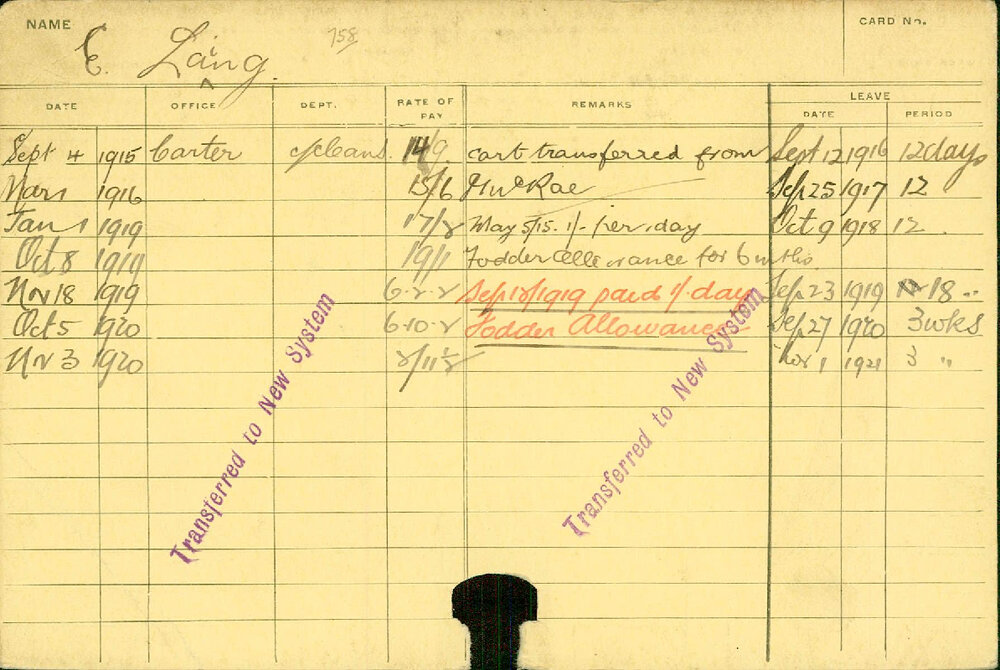 NAME
CARD No.
E. Laing.
758
DATE OFFICE DEPT. RATE OF PAY REMARKS LEAVE
DATE PERIOD
Sept 4 1915 Carter Cleans. 14/9. cart transferred from Sept 12 1916 12 days
Mar 1 1916 15/6 H McRae Sep 25 1917 12
Jan 1 1919 17/2 May 5/15. 1/- per day Oct 9 1918 12
Oct 8 1919 19/1 Fodder Allowance for 6 mths
Nov 18 1919 6.2.2 Sep 18/1919 paid 1/- day Sep 23 1919 18 "
Oct 5 1920 6.10.2 Fodder Allowance Sep 27 1920 3 wks
Nov 3 1920 Nov 1 1921 3 "
Transferred to New System
Transferred to New System